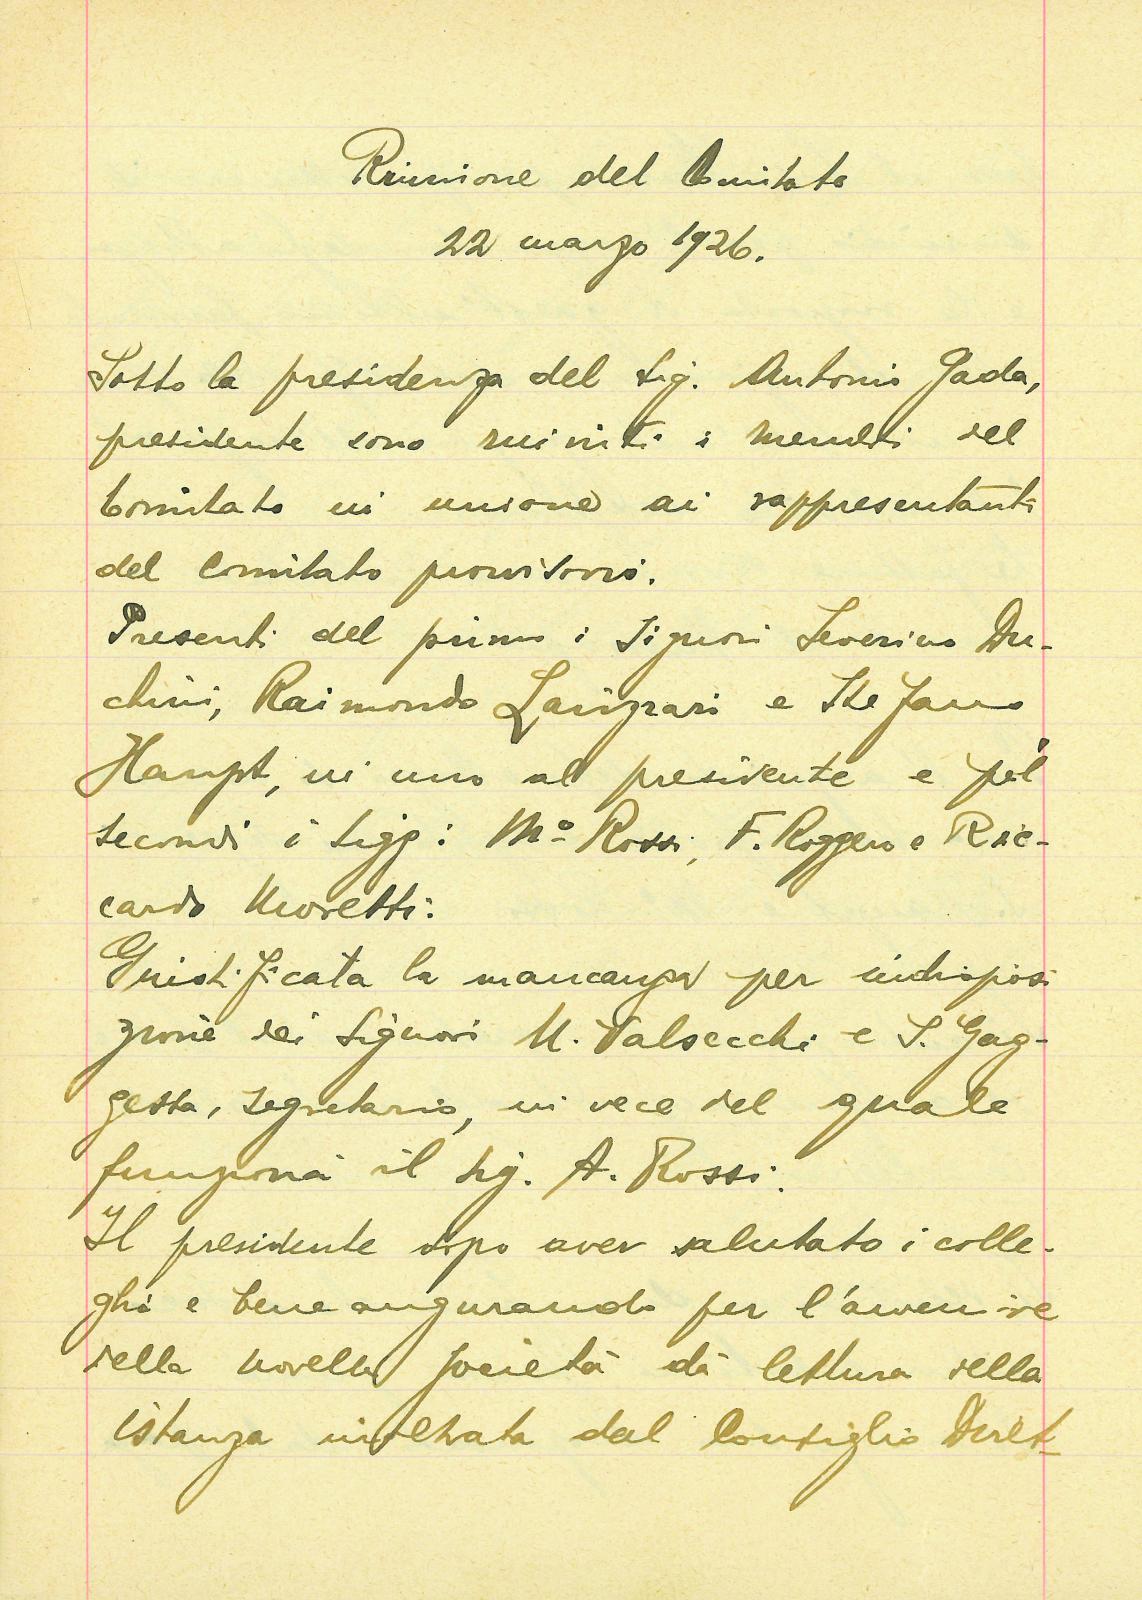 Riunione del Comitato
22 marzo 1926.
Sotto la presidenza del Sig. Antonio Gada,
presidente sono riuniti i membri del
Comitato in unione ai rappresentanti
del Comitato provvisorio.
Presenti del primo i Signori Severino Du-
chini, Raimondo e Stefano
Haupt, in uno al presidente e pel
secondi i Sigg: Mº Rossi, F. Roggero e Ric-
cardo Moretti.
Giustificata la mancanza per indisposi
zione dei Signori M. Valsecchi e S. Gag-
getta, segretario, in vece del quale
funziona il Sig. A. Rossi.
Il presidente dopo aver salutato i colle-
ghi e bene augurando per l'avvenire
della novella società dà lettura della
istanza inoltrata dal Consiglio Diret-